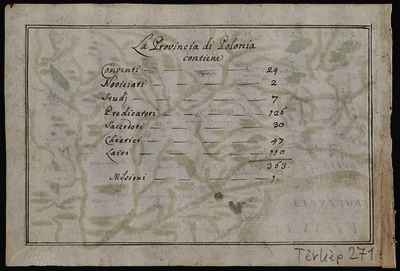 La Provincia di Polonia
contiene
Conventi — — — 24
Novitiati — — — 2
Studi — — — 7
Predicatori — — — 126
Sacerdoti — — — 30
Chierici — — — 47
Laici — — — 110
363
Missioni — — — 1
Térkép 271